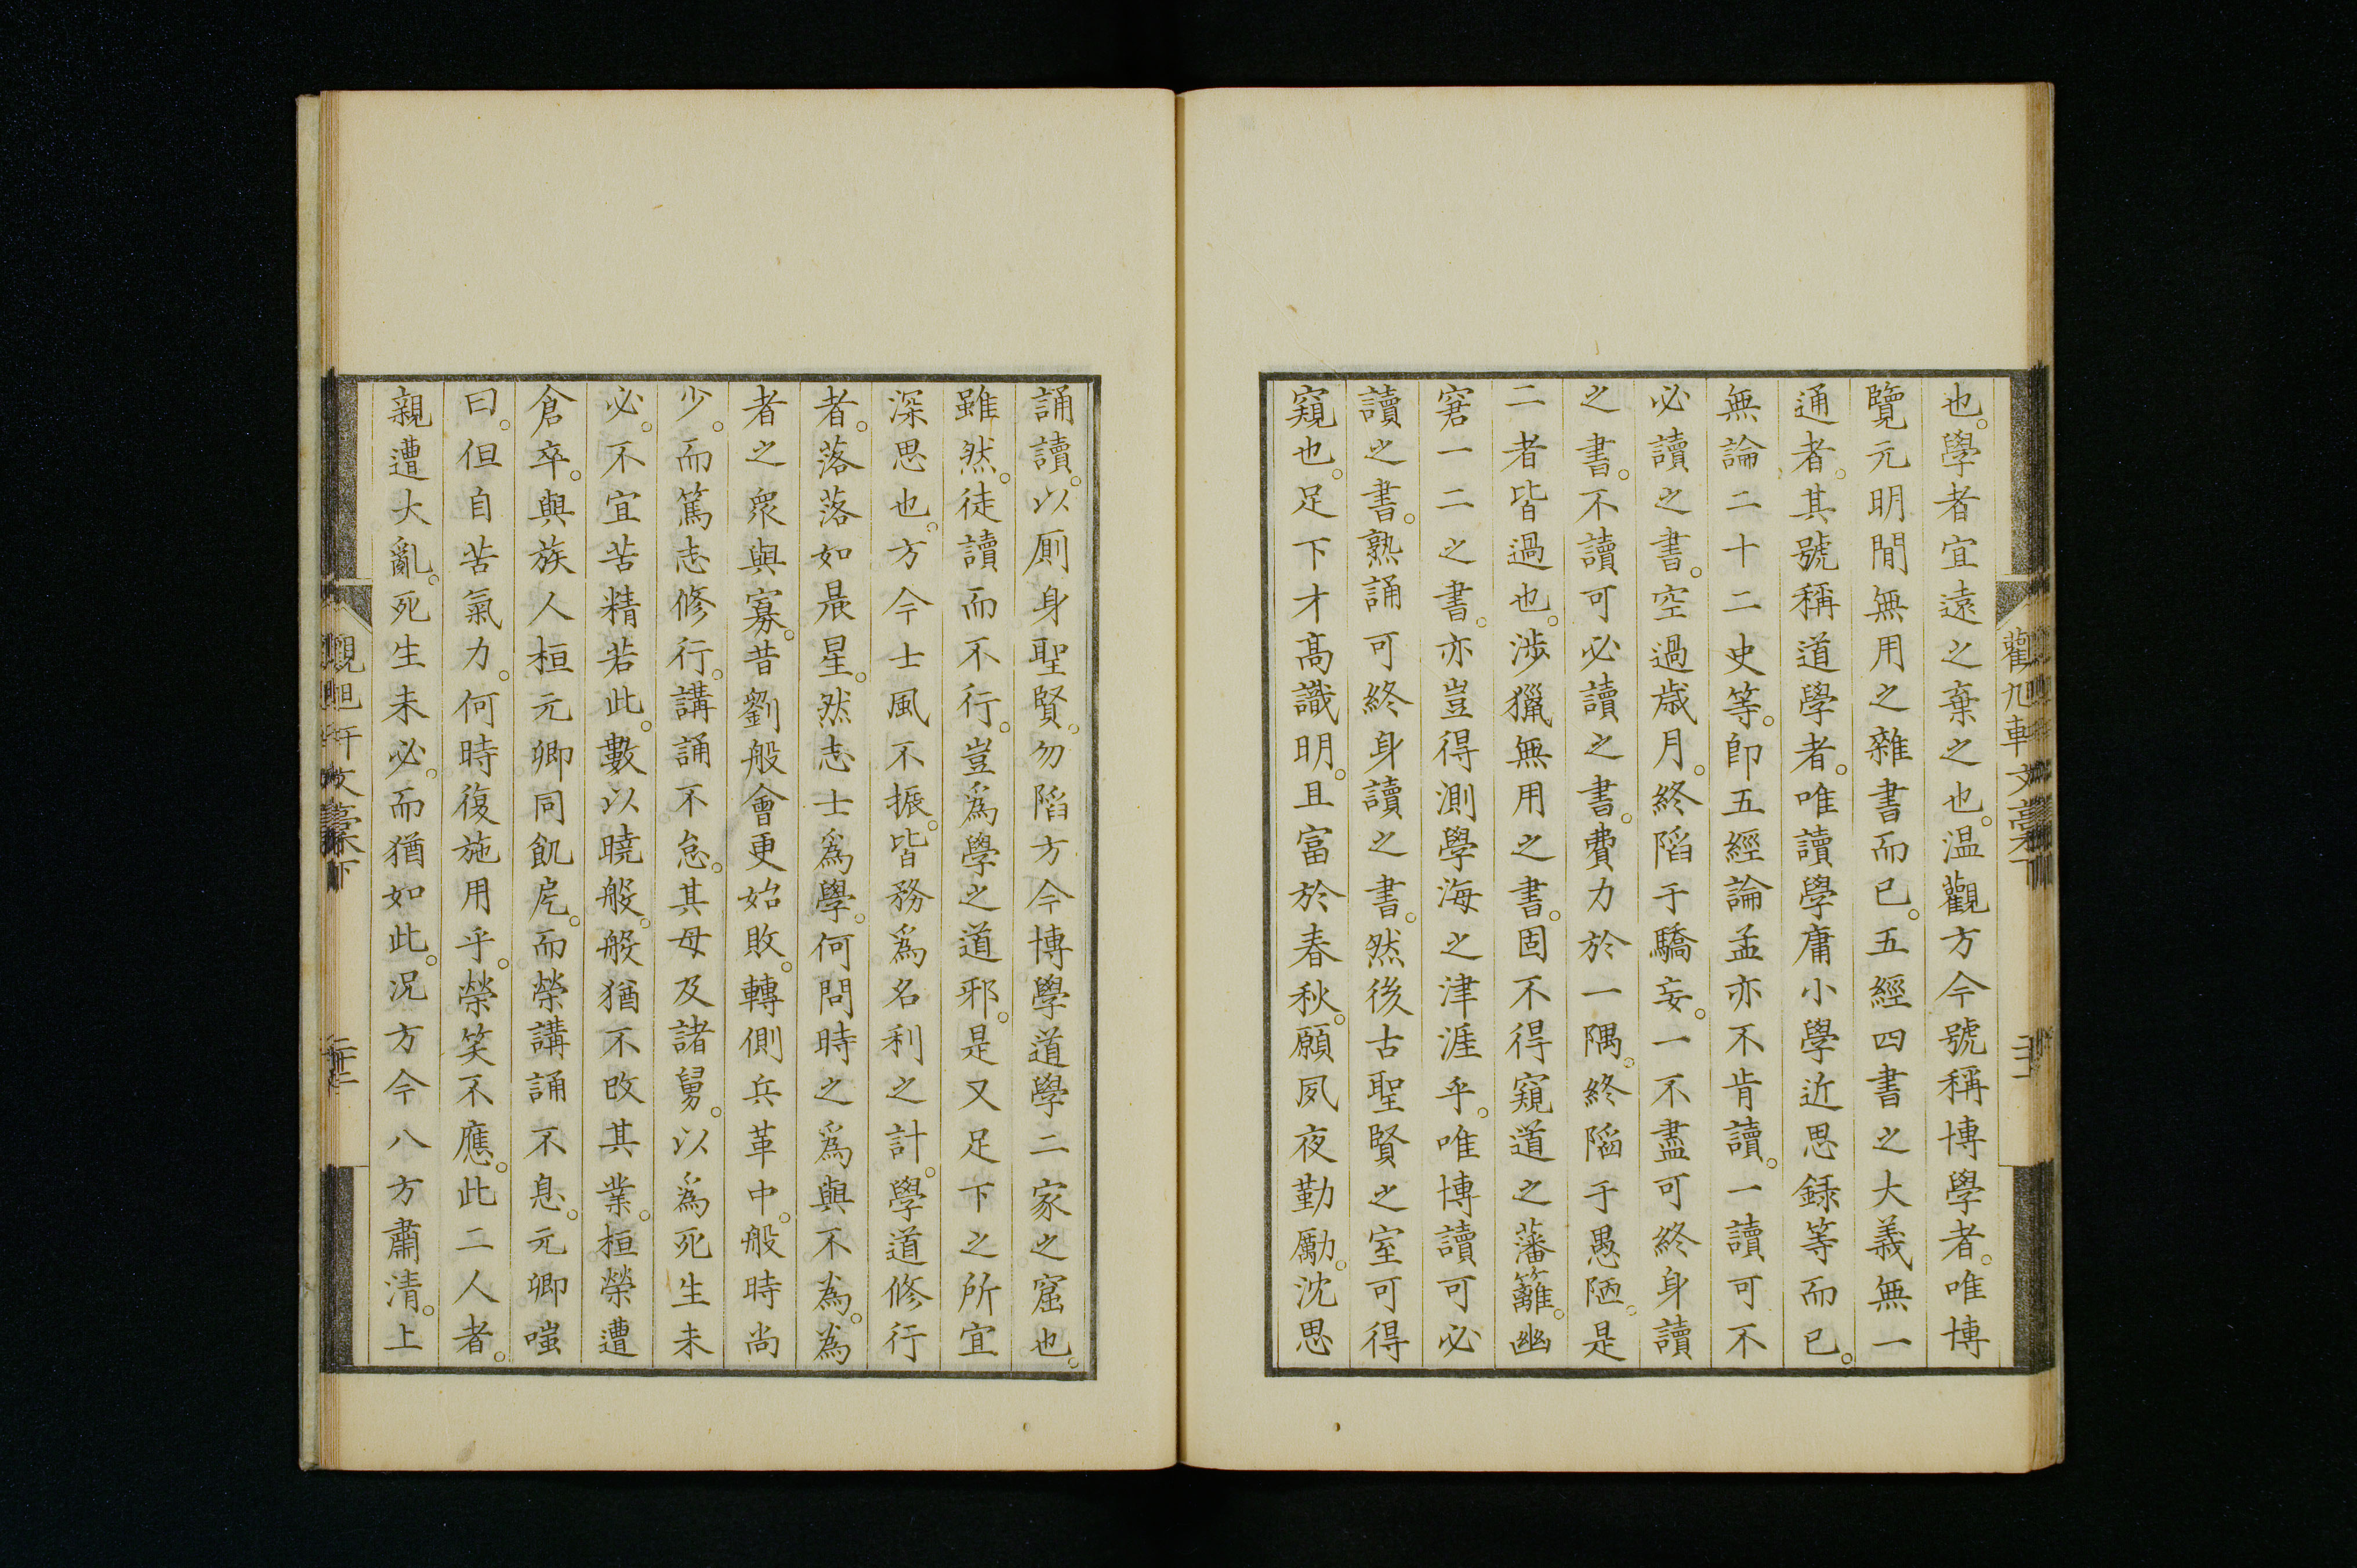 也。學者宜遠之棄之也。温觀方今號稱博學者。唯博
覽元明間無用之雜書而已。五經四書之大義無一
通者。其號稱道學者。唯讀學庸小學近思録等而已。
無論二十二史等。即五經論孟亦不肯讀。一讀可不
必讀之書。空過歳月。終陷于驕妄。一不盡可終身讀
之書。不讀可必讀之書。費力於一隅。終陷于愚陋。是
二者皆過也。涉獵無用之書。固不得窺道之藩籬。幽
窘一二之書。亦豈得測學海之津涯乎。唯博讀可必
讀之書。熟誦可終身讀之書。然後古聖賢之室可得
窺也。足下才高識明。且富於春秋。願夙夜勤勵。沈思
誦讀。以厠身聖賢。勿陷方今博學道學二家之窟也。
雖然。徒讀而不行。豈爲學之道邪。是又足下之所宜
深思也。方今士風不振。皆務爲名利之計。學道修行
者。落落如晨星。然志士爲學。何問時之爲與不為。為
者之衆與寡。昔劉般會更始敗。轉側兵革中。般時尚
少。而篤志修行。講誦不怠。其母及諸舅。以爲死生未
必。不宜苦精若此。數以曉般。般猶不改其業。桓榮遭
倉卒。與族人桓元卿同飢戹。而榮講誦不息。元卿嗤
曰。但自苦氣力。何時復施用乎。榮笑不應。此二人者。
親遭大亂。死生未必。而猶如此。況方今八方肅清。上
觀旭軒文稾下
二十二